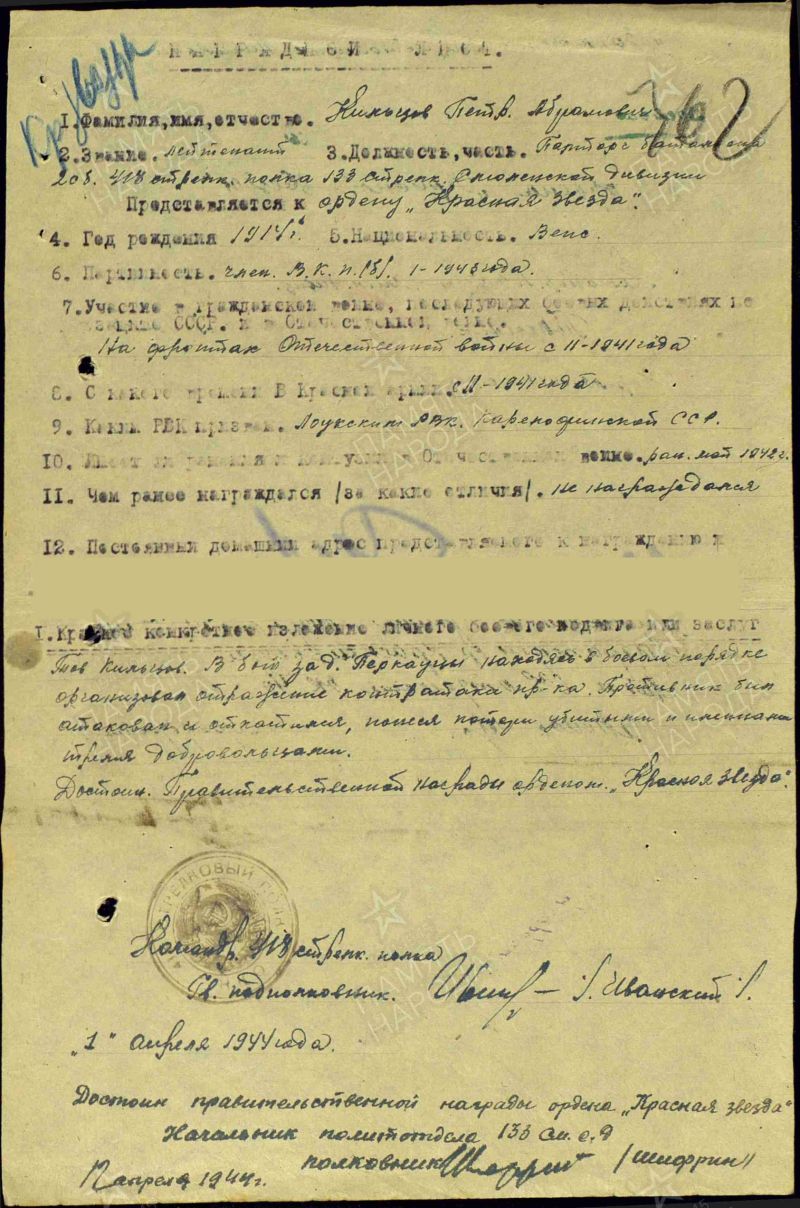 Кр. Звезда
НАГРАДНОЙ ЛИСТ.
1. Фамилия, имя, отчество. Кильцов Петр. Абрамович
2. Звание. лейтенант 3. Должность, часть. Парторг батальона
2 сб. 418 стрелк. полка 133 стрелк. Смоленской дивизии
Представляется к ордену „Красная звезда".
4. Год рождения 1914 г. 5. Национальность. Вепс.
6. Партийность. член. В.К.П.(б). 1-1943 года.
7. Участие в гражданской войне, последующих боевых действиях по
защите СССР. и в Отечественной войне.
На фронтах Отечественной войны с 11-1941 года
8. С какого времени В Красной армии. с 11-1941 года
9. Каким РВК призван. Лоухским РВК. Карелофинской ССР.
10. Имеет ли ранения и контузии в Отечественной войне. ран. май 1942 г.
11. Чем ранее награждался /за какие отличия/. не награждался
12. Постоянный домашний адрес представляемого к награждению и
1. Краткое конкретное изложение личного боевого подвига или заслуг
Тов Кильцов. В бою за д. Перкауцы находясь в боевом порядке
организовал отражение контратаки пр-ка. Противник был
атакован и откатился, понеся потери убитыми и пленными
тремя добровольцами.
Достоин. Правительственной награды орденом. „Красная звезда".
СТРЕЛКОВЫЙ ПОЛК
Командр. 418 стрелк. полка
Гв. подполковник. /. Иванский /.
„1" апреля 1944 года.
Достоин правительственной награды ордена „Красная звезда"
Начальник политотдела 133 См. с.д
полковник /шифрин/
12 апреля 1944 г.
ПАМЯТЬ
НАРОДА